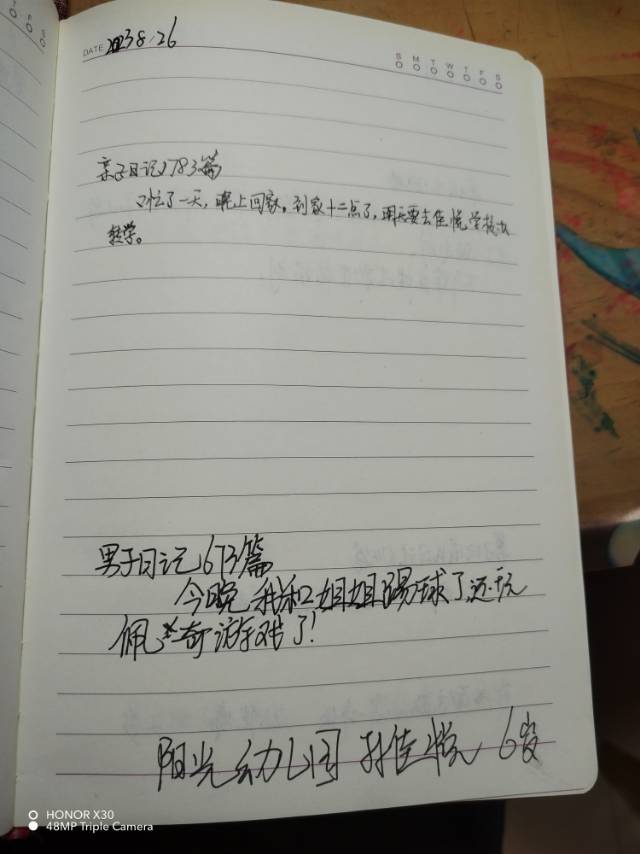 DATE 2023 8.26
S M T W T F S
亲子日记1783篇
又忙了一天，晚上回家。到家十二点了，明天要去佳悦学校
教学。
男子日记673篇
今晚我和姐姐踢球了,还玩
佩奇游戏了!
阳光幼儿园 孙佳悦 6岁
HONOR X30
48MP Triple Camera